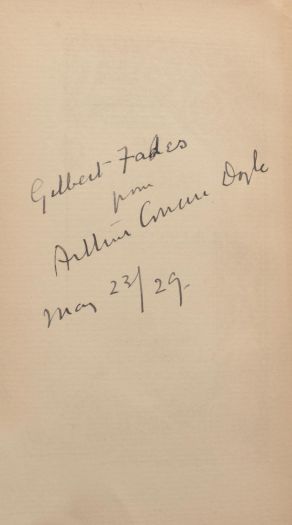 Gilbert Fabes
from
Arthur Conan Doyle
May 23/29.